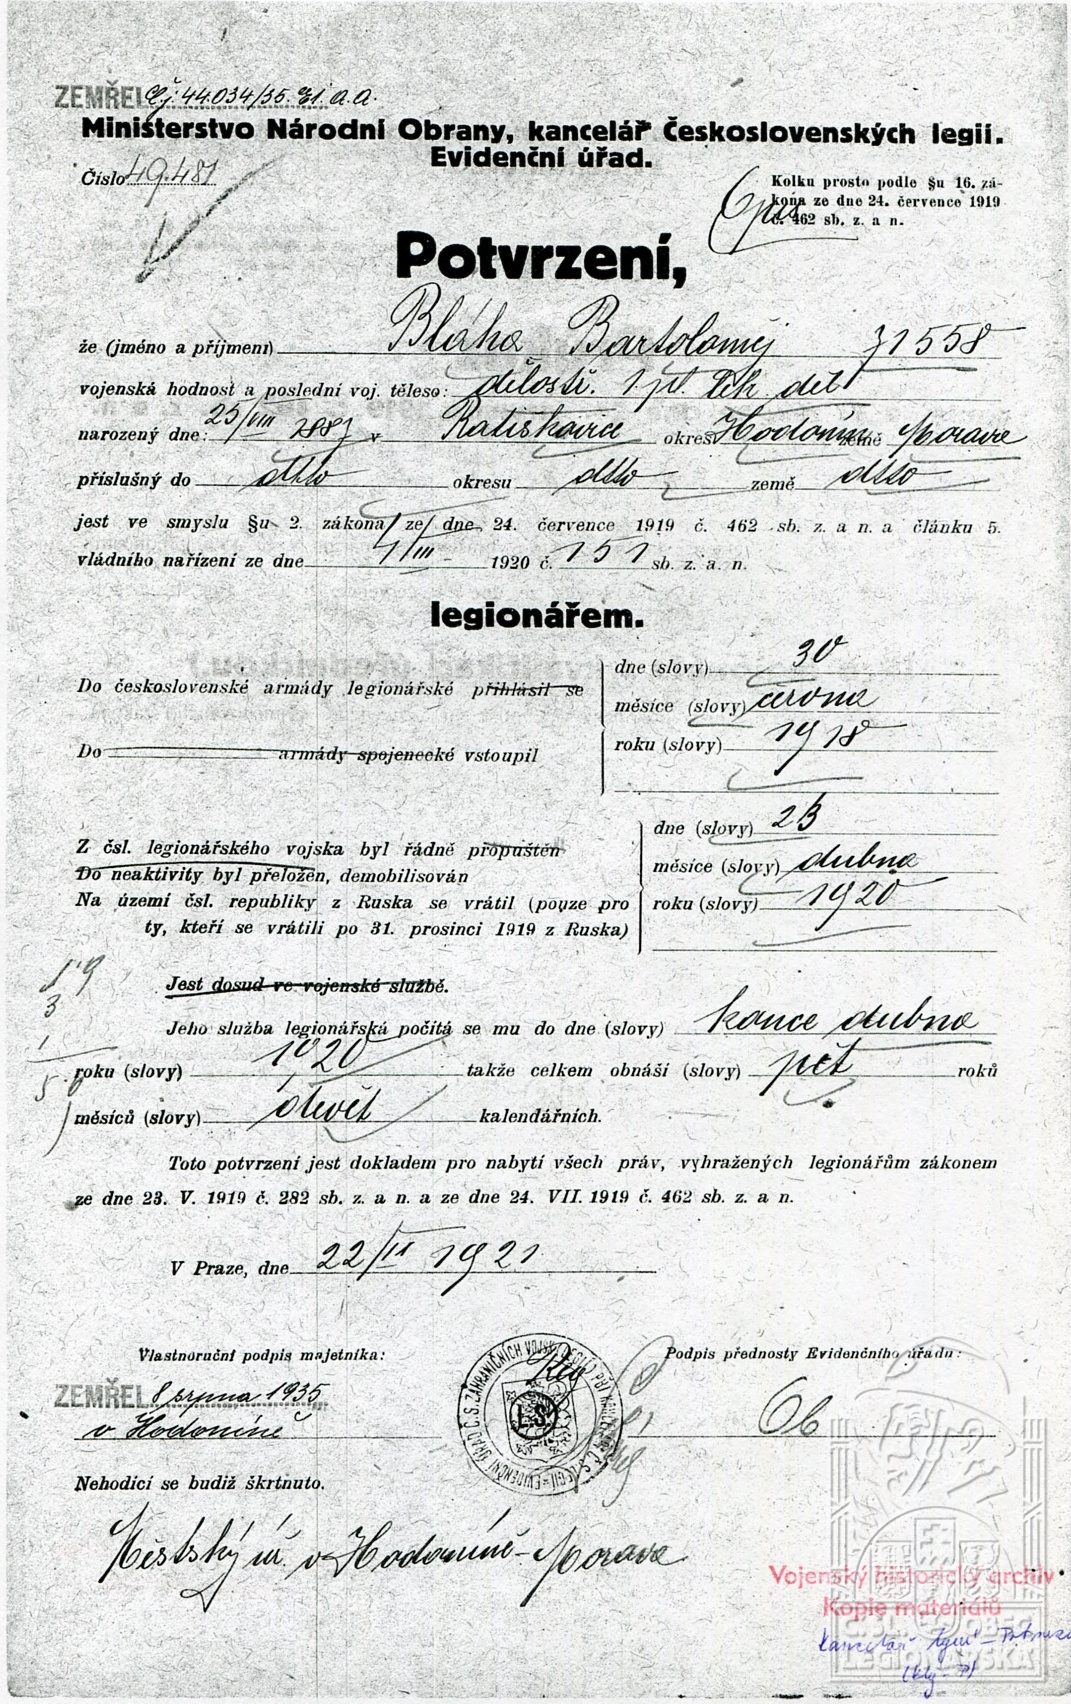 ZEMŘEL Čj. 44.034/35. El. a. a.
Ministerstvo Národní Obrany, kancelář Československých legií.
Evidenční úřad.
Číslo 49.481
Kolku prosto podle §u 16. zá-
kona ze dne 24. července 1919
č. 462 sb. z. a n.
Opis
Potvrzení,
že (jméno a příjmení) Bláha Bartoloměj 71558
vojenská hodnost a poslední voj. těleso: dělostř. 1 pl. leh. děl
narozený dne: 25/VIII 1887 v Ratiškovice okres Hodonín země Morava
příslušný do dtto okresu dtto země dtto
jest ve smyslu §u 2. zákona ze dne 24. července 1919 č. 462 sb. z. a n. a článku 5.
vládního nařízení ze dne 4/III 1920 č. 151 sb. z. a. n.
legionářem.
Do československé armády legionářské přihlásil se
Do armády spojenecké vstoupil
dne (slovy) 30
měsíce (slovy) června
roku (slovy) 1918
Z čsl. legionářského vojska byl řádně propuštěn
Do neaktivity byl přeložen, demobilisován
Na území čsl. republiky z Ruska se vrátil (pouze pro
ty, kteří se vrátili po 31. prosinci 1919 z Ruska)
dne (slovy) 23
měsíce (slovy) dubna
roku (slovy) 1920
1 9
3
1
5 9
Jest dosud ve vojenské službě.
Jeho služba legionářská počítá se mu do dne (slovy) konce dubna
roku (slovy) 1920 takže celkem obnáší (slovy) pět roků
měsíců (slovy) devět kalendářních.
Toto potvrzení jest dokladem pro nabytí všech práv, vyhražených legionářům zákonem
ze dne 23. V. 1919 č. 282 sb. z. a n. a ze dne 24. VII. 1919 č. 462 sb. z. a n.
V Praze, dne 22/II 1921
Vlastnoruční podpis majetníka:
Podpis přednosty Evidenčního úřadu:
ZEMŘEL 8 srpna 1935
v Hodoníně
L.S.
Ob
Nehodící se budiž škrtnuto.
Městský úř. v Hodoníně - Morava
Vojenský historický archiv
Kopie materiálů
ČSL. OBEC
LEGIONÁŘSKÁ